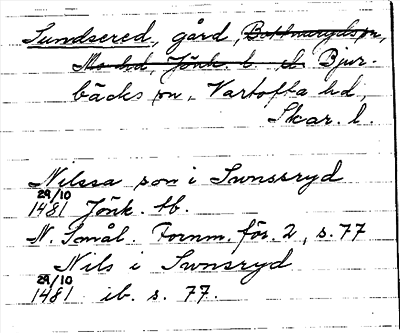 Sundsered, gård, Bottnaryds sn,
Mo hd, Jönk. l. ch Bjur-
bäcks sn, Vartofta hd,
Skar. l.
Nilssa son i Swnssryd
29/10
1481 Jönk. tb.
N. Smål. Fornm. för. 2, s. 77
Nils i Swnsryd
29/10
1481 ib. s. 77.